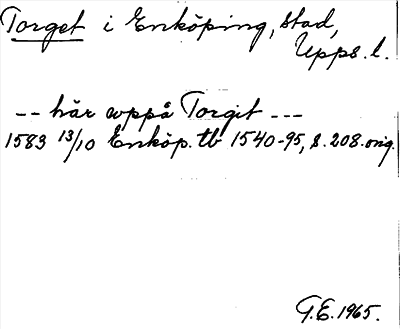 Torget i Enköping, stad,
Upps. l.
-- här uppå Torgit ---
1583 13/10 Enköp. tb 1540-95, s. 208. orig.
G.E. 1965.